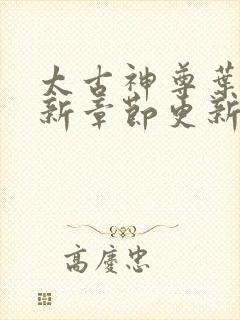 太古神尊葉
新章節更新
高慶忠